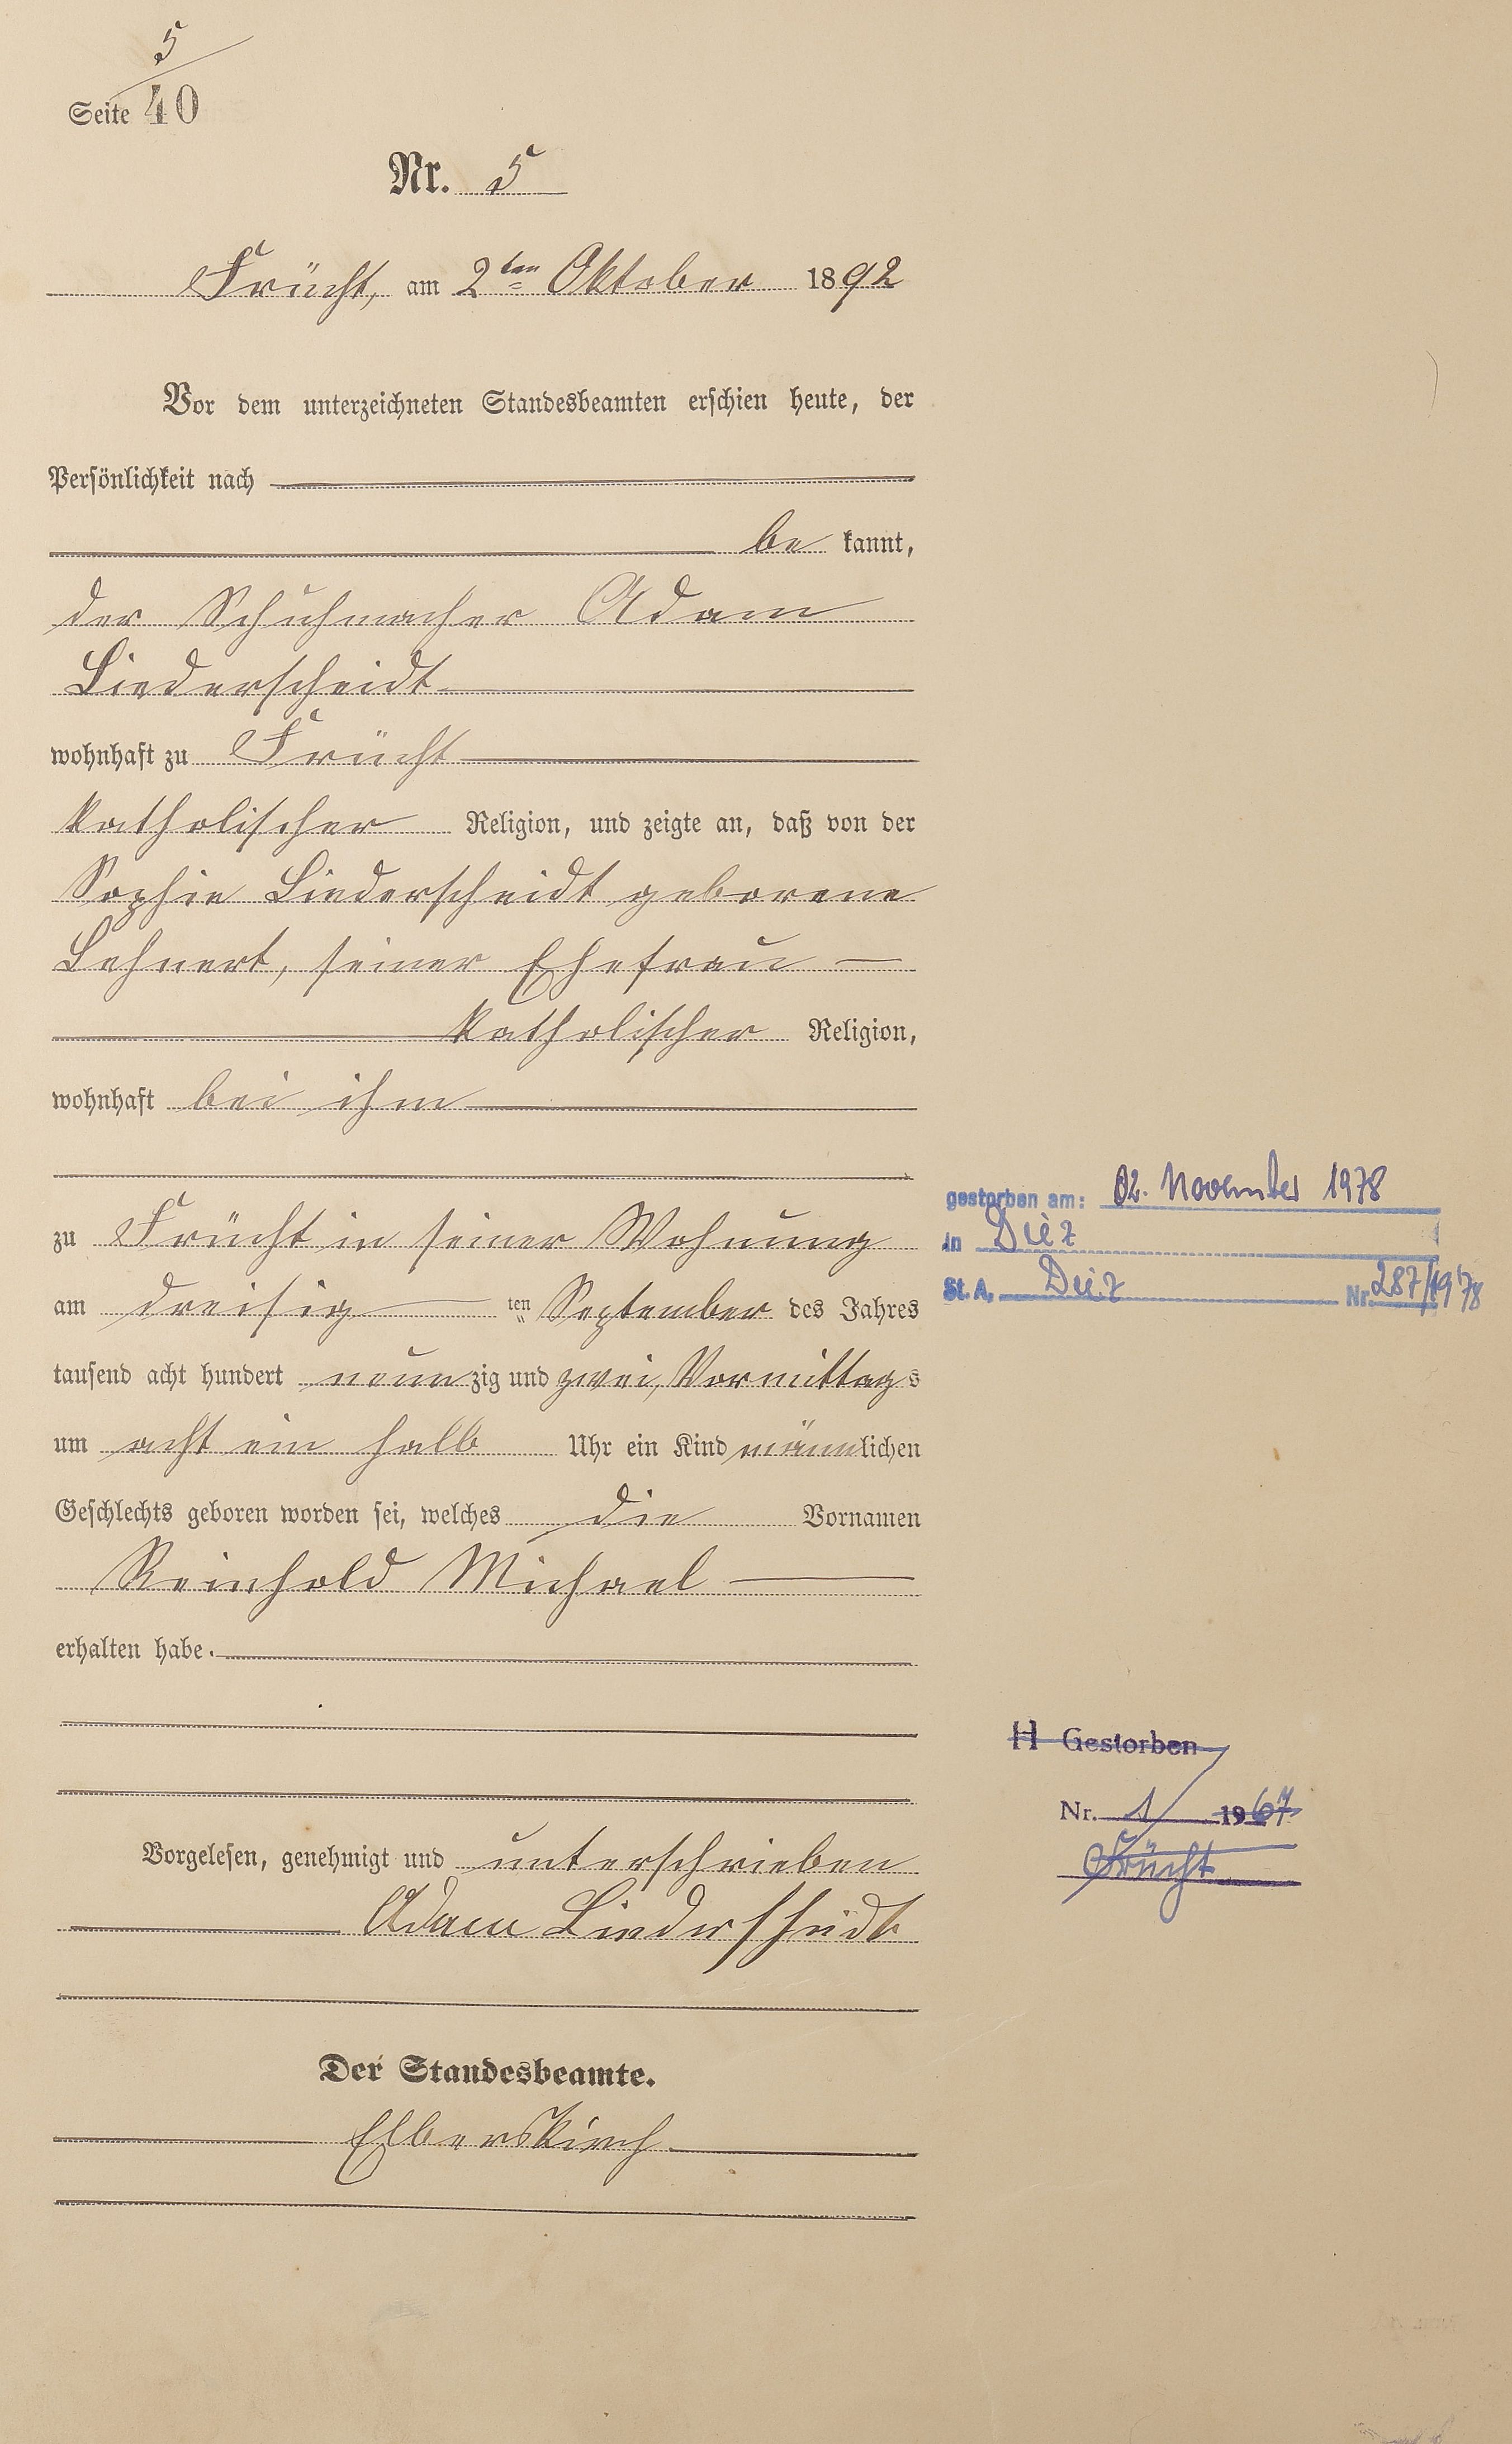 5
Seite 40
Nr. 5
Frücht, am 2ten Oktober 1892
Vor dem unterzeichneten Standesbeamten erschien heute, der
Persönlichkeit nach
be kannt,
der Schuhmacher Adam
Liederscheidt
wohnhaft zu Frücht
katholischer Religion, und zeigte an, daß von der
Sophie Liederscheidt geborene
Lehnert, seiner Ehefrau
katholischer Religion,
wohnhaft bei ihm
zu Frücht in seiner Wohnung
am dreisig ten September des Jahres
tausend acht hundert neun zig und zwei, Vormittags
um acht ein halb Uhr ein Kind männlichen
Geschlechts geboren worden sei, welches die Vornamen
Reinhold Michael
erhalten habe.
Vorgelesen, genehmigt und unterschrieben
Adam Liederscheidt
Der Standesbeamte.
Elberskirch
gestorben am: 02. November 1978
in Diez
St. A. Diez Nr. 287/1978
H Gestorben
Nr. 1 1967
Frücht